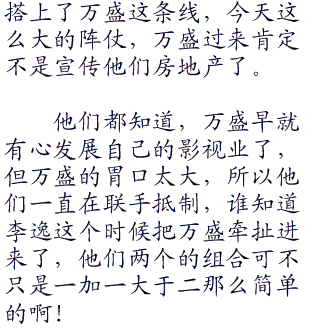 搭上了万盛这条线，今天这
么大的阵仗，万盛过来肯定
不是宣传他们房地产了。
他们都知道，万盛早就
有心发展自己的影视业了，
但万盛的胃口太大，所以他
们一直在联手抵制，谁知道
李逸这个时候把万盛牵扯进
来了，他们两个的组合可不
只是一加一大于二那么简单
的啊！